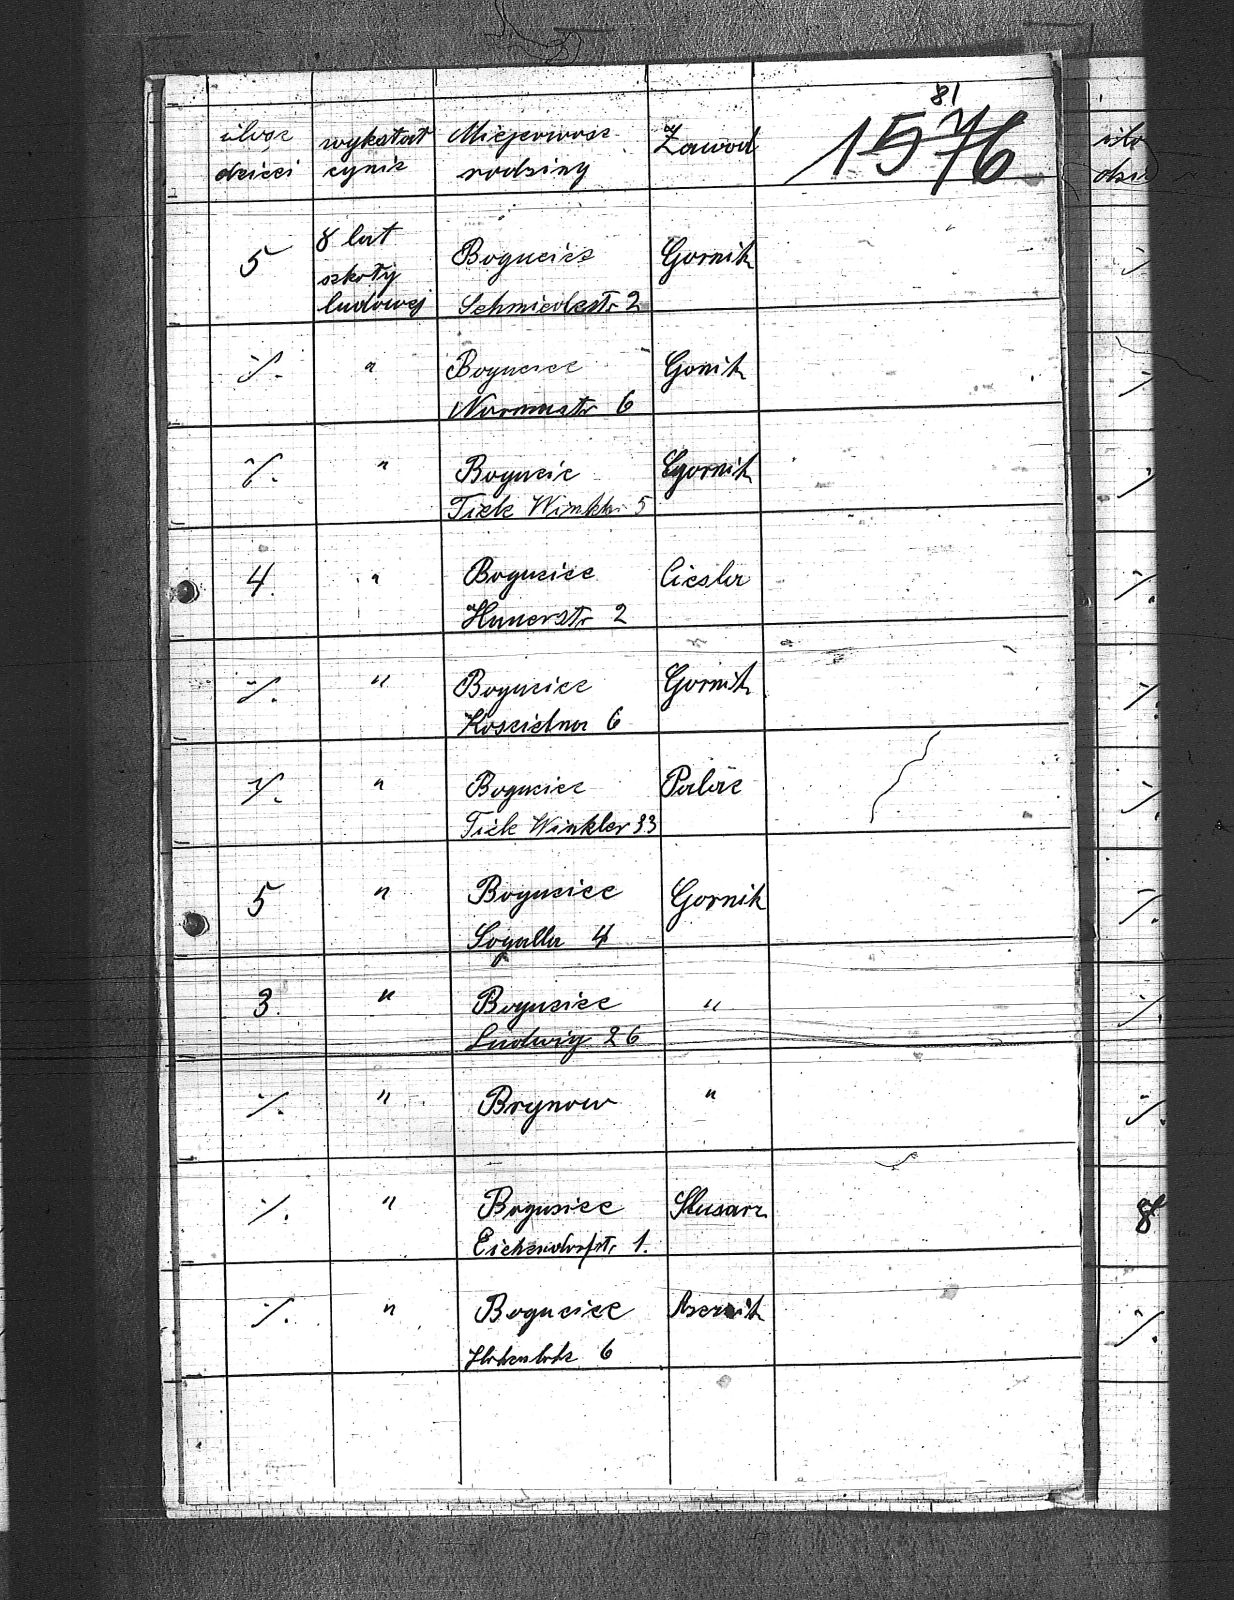 81
1576
ilosc dzieci wykstat cynie Miejscowosc rodziny Zawod
5 8 lat szkoły ludowej Bogucice Schmiedestr 2 Gornik
·/. " Bogucice Normastr 6 Gonik
·/. " Bogucic Tiele Winkler 5 Gornik
4 " Bogucice Hunerstr 2 Ciesla
·/. " Bogucice Koscielna 6 Gornik
·/. " Bogucice Tiele Winkler 33 Palac
5 " Bogucice Sogalla 4 Gornik
3 " Bogucice Ludwig 26 "
·/. " Brynow "
·/. " Bogucice Eichendorfstr 1. Slusarz
·/. " Bogucice 6
8